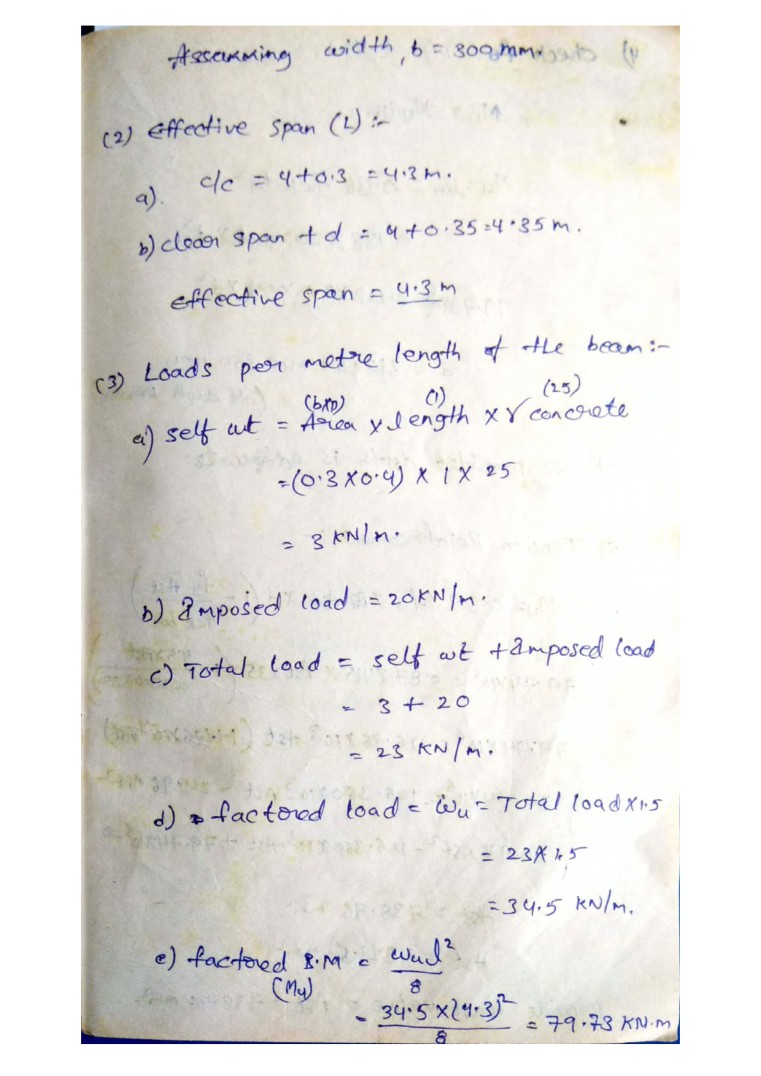 Assumming width, b = 300mm.
(2) Effective span (L) :-
a). c/c = 4+0.3 = 4.3 m.
b) clear span + d = 4+0.35=4.35 m.
effective span = 4.3 m
(3) Loads per metre length of the beam:-
(b×D) (1) (25)
a) self wt = Area × length × γ concrete
=(0.3 × 0.4) × 1 × 25
= 3 KN/m.
b) Imposed load = 20KN/m.
c) Total load = self wt + Imposed load
= 3 + 20
= 23 KN/m.
d) factored load = Wu = Total load × 1.5
= 23 × 1.5
= 34.5 KN/m.
e) factored B.M = wul²
(Mu) 8
= 34.5 × (4.3)² = 79.73 KN.m
8